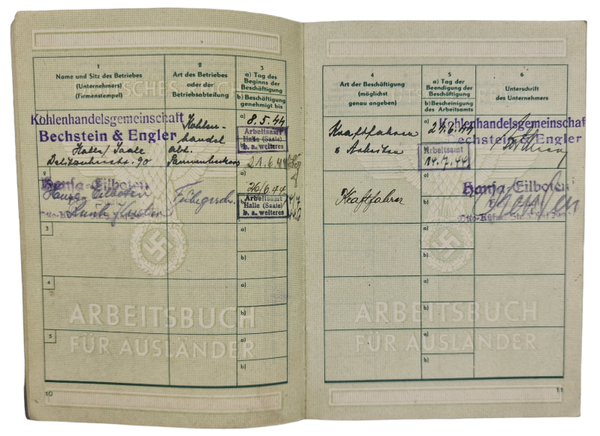 1
Name und Sitz des Betriebes
(Unternehmers)
(Firmenstempel)
2
Art des Betriebes
oder der
Betriebsabteilung
3
a) Tag des
Beginns der
Beschäftigung
b) Beschäftigung
genehmigt bis
Kohlenhandelsgemeinschaft
Bechstein & Engler
Halle/Saale
Kohlen-
handel
Abt.
a)
8.5.44
Arbeitsamt
Halle (Saale)
b. a. weiteres
21.6.44
Hansa-Eilboten
26/6 44
Arbeitsamt
Halle (Saale)
b. a. weiteres
3
a)
b)
4
a)
b)
5
a)
b)
ARBEITSBUCH
FÜR AUSLÄNDER
10
4
Art der Beschäftigung
(möglichst
genau angeben)
5
a) Tag der
Beendigung der
Beschäftigung
b) Bescheinigung
des Arbeitsamts
6
Unterschrift
des Unternehmers
Kraftfahrer
a)
21.6.44
Kohlenhandelsgemeinschaft
Bechstein & Engler
Arbeitsamt
14.7.44
Kraftfahrer
a)
b)
Hansa-Eilboten
a)
b)
a)
b)
a)
b)
ARBEITSBUCH
FÜR AUSLÄNDER
11